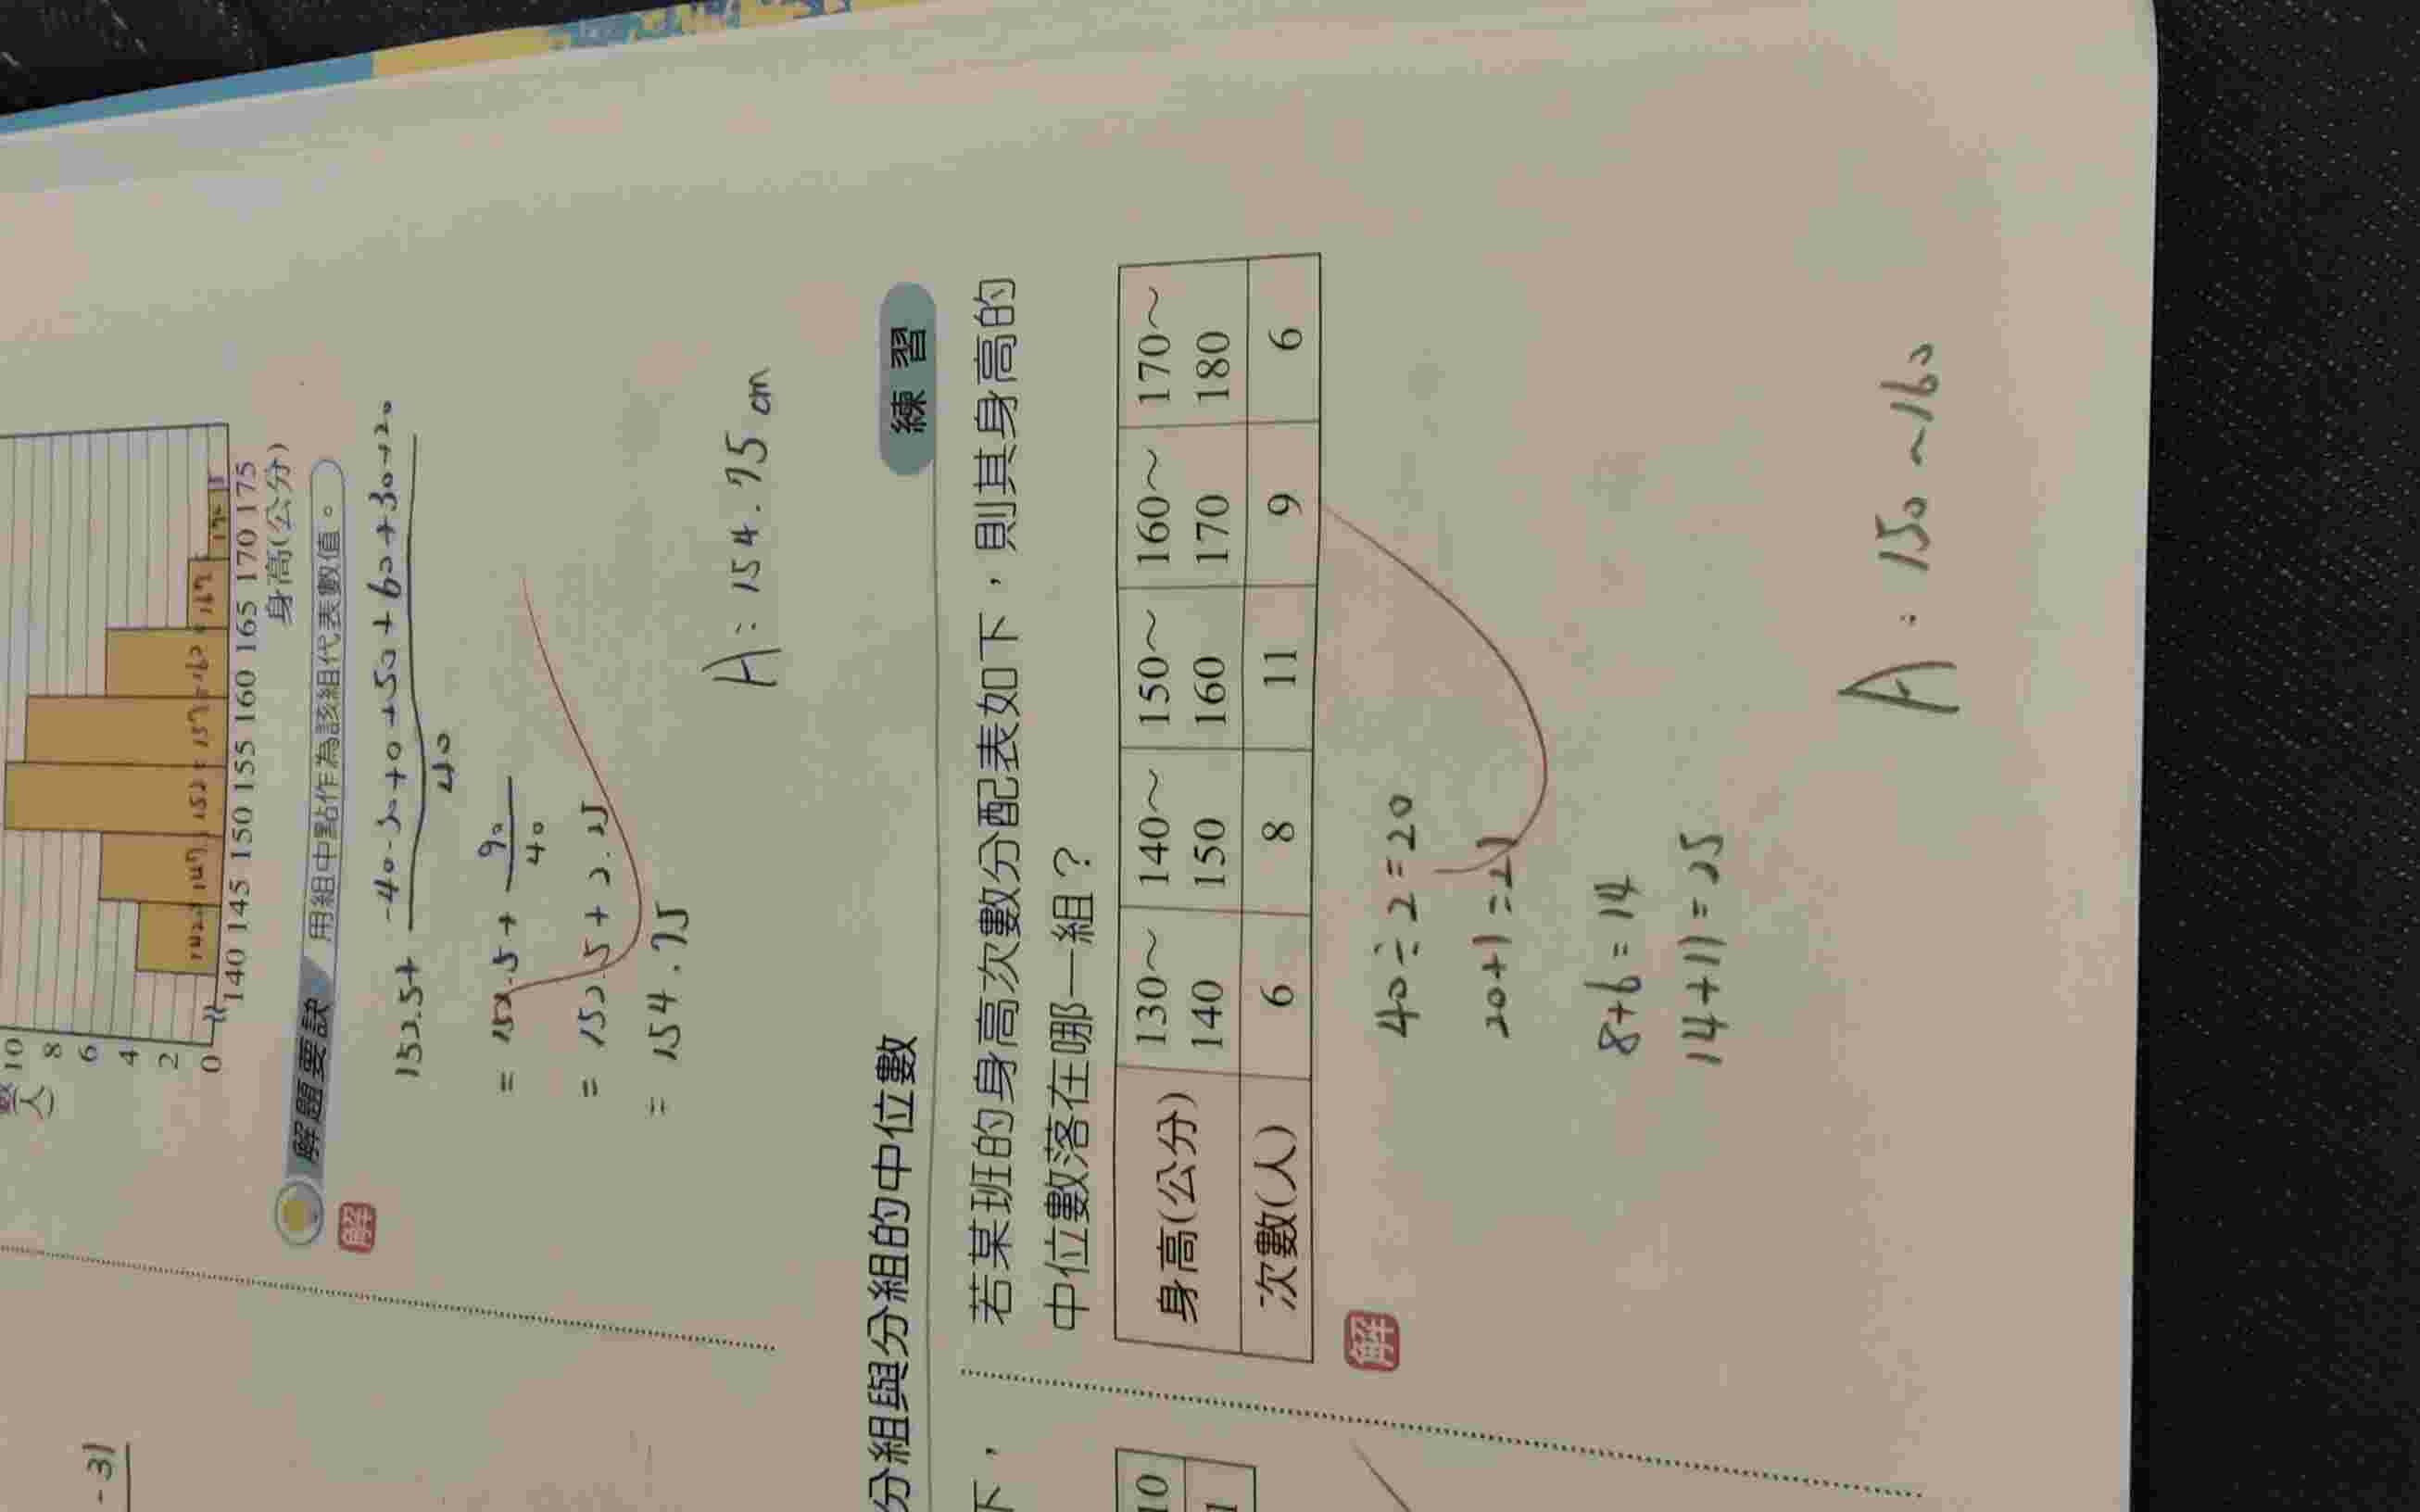 人
10
8
6
4
2
0
140 145 150 155 160 165 170 175
身高(公分)
解題要訣 用組中點作為該組代表數值。
解
-40-30+0+50+60+30+20
152.5+
40
= 152.5+ 90
40
= 152.5+2.25
= 154.75
A:154.75 cm
-31
分組與分組的中位數
練習
若某班的身高次數分配表如下，則其身高的
中位數落在哪一組？
身高(公分) 130～140 140～150 150～160 160～170 170～180
次數(人) 6 8 11 9 6
解
40÷2=20
20+1=21
8+6=14
14+11=25
A:150~160
下，
10
1